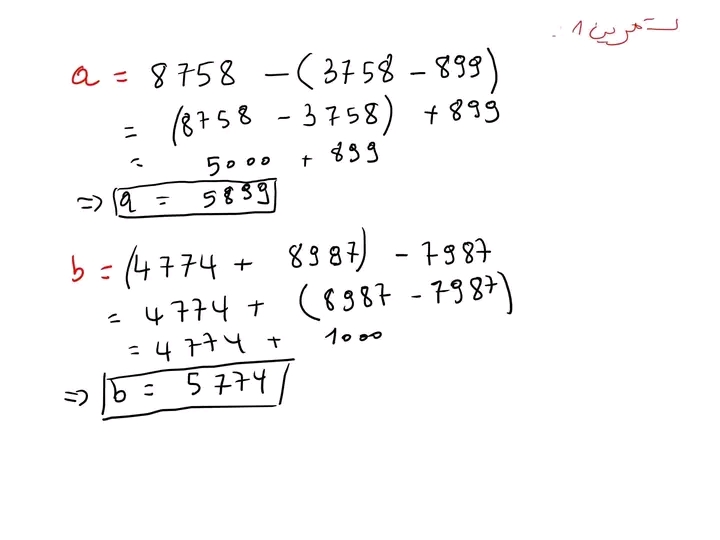 تمرين 1:
a = 8758 - (3758 - 899)
= (8758 - 3758) + 899
= 5000 + 899
=> a = 5899
b = (4774 + 8987) - 7987
= 4774 + (8987 - 7987)
= 4774 + 1000
=> b = 5774